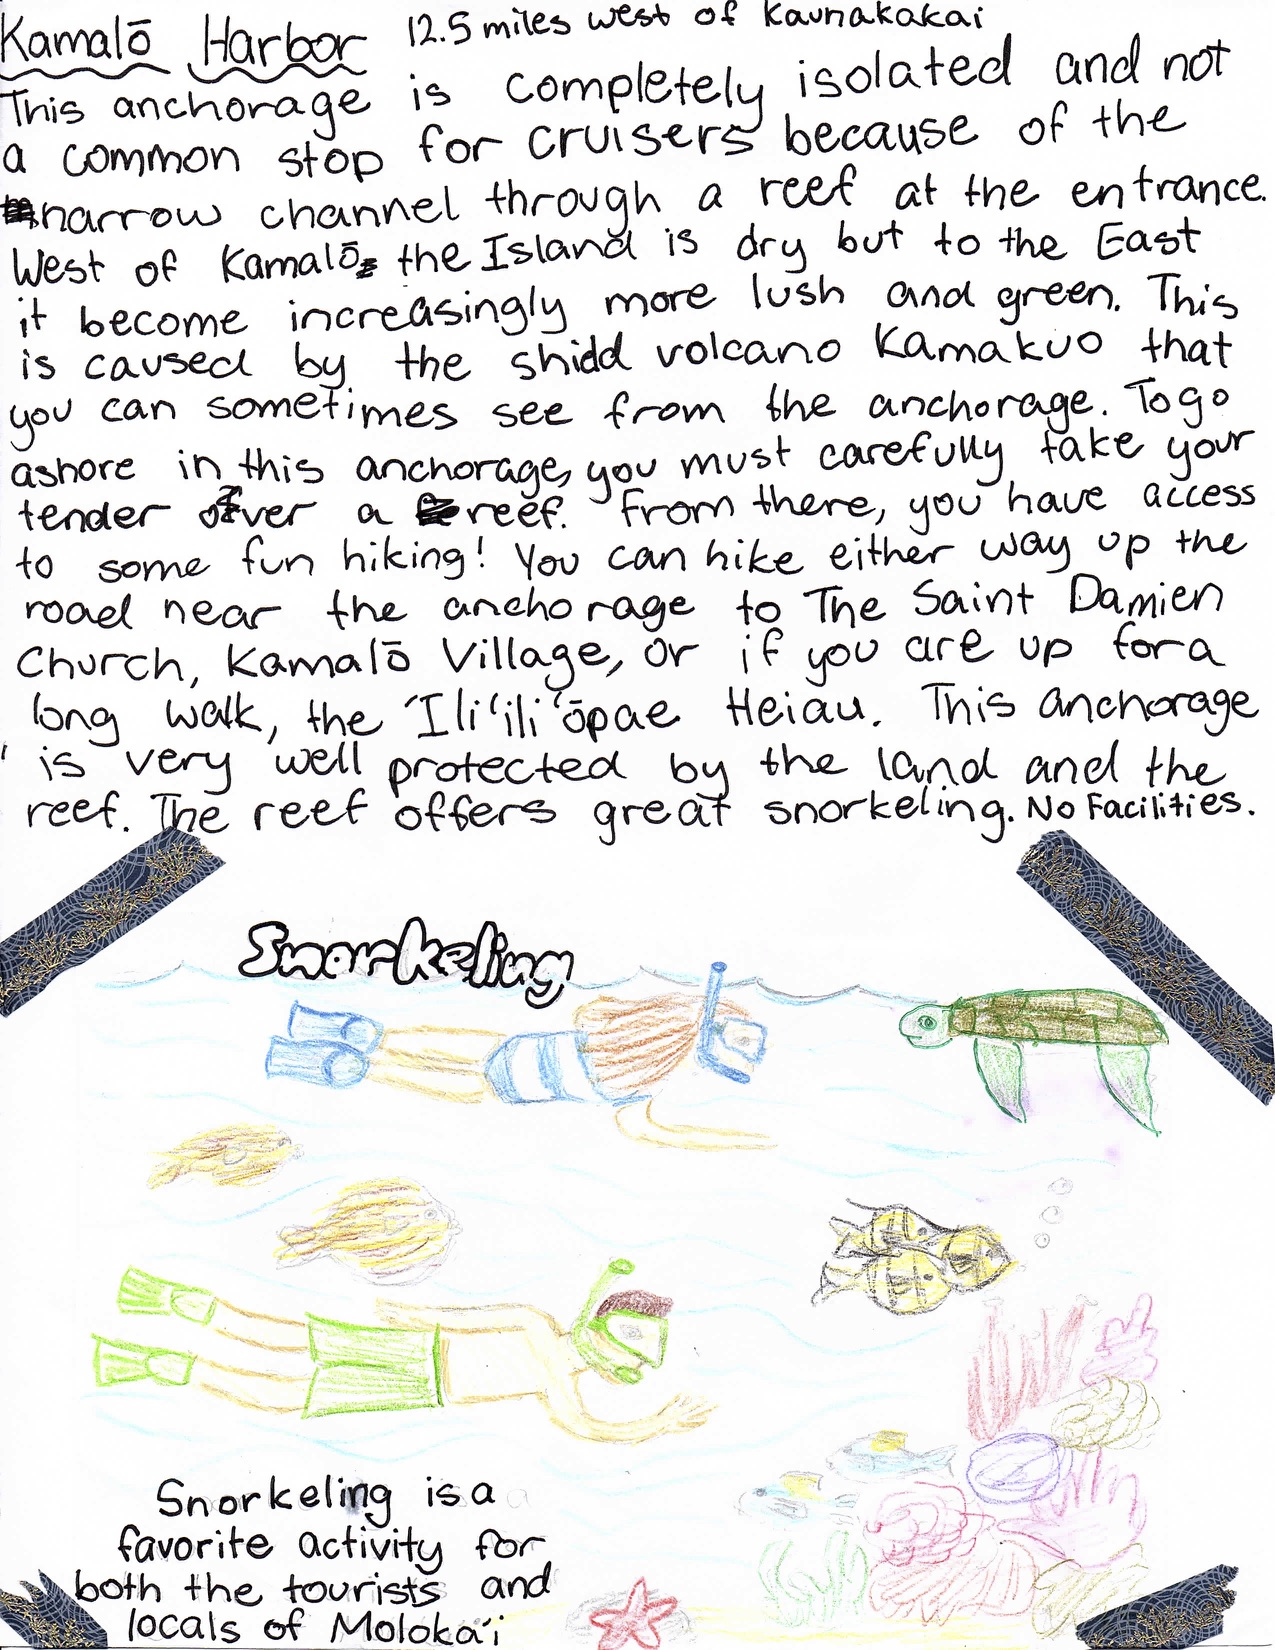 Kamalō Harbor 12.5 miles west of Kaunakakai
This anchorage is completely isolated and not
a common stop for cruisers because of the
narrow channel through a reef at the entrance.
West of Kamalō, the Island is dry but to the East
it become increasingly more lush and green. This
is caused by the shidd volcano Kamakuo that
you can sometimes see from the anchorage. To go
ashore in this anchorage, you must carefully take your
tender over a reef. From there, you have access
to some fun hiking! You can hike either way up the
road near the anchorage to The Saint Damien
Church, Kamalō Village, or if you are up for a
long walk, the ʻIliʻiliʻōpae Heiau. This anchorage
is very well protected by the land and the
reef. The reef offers great snorkeling. No Facilities.
Snorkeling
Snorkeling is a
favorite activity for
both the tourists and
locals of Moloka'i